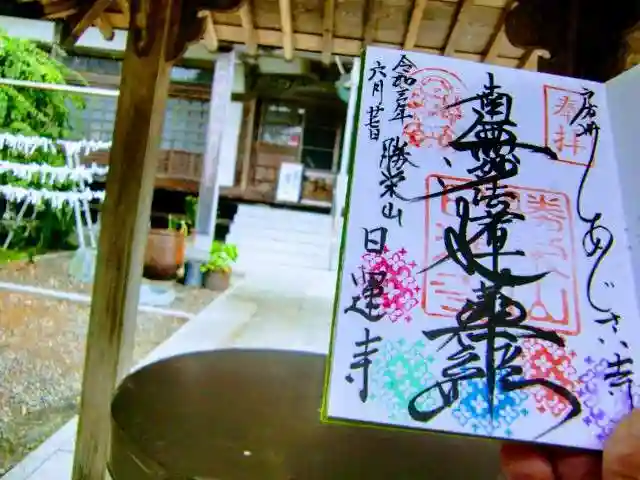 奉拝
房州 あじさい寺
南無妙法蓮華経
令和三年
六月廿日
勝栄山 日運寺